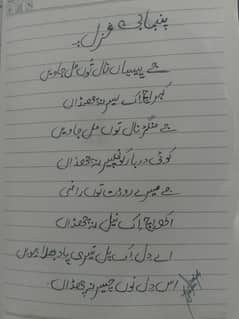 پنجابی غزل :۔
جے پیسیاں نال توں مل جاویں
گھر اچ اک پیسہ نہ چھڈاں
جے منگڑ نال توں مل جاویں
کوئی دربار کوئی پیر نہ چھڈاں
جے میرے روون توں راضی
اکھ اچ اک نیر نہ چھڈاں
اے دل اک پل تیری یاد بھلا دیویں
اس دل نوں چیر نہ چھڈاں